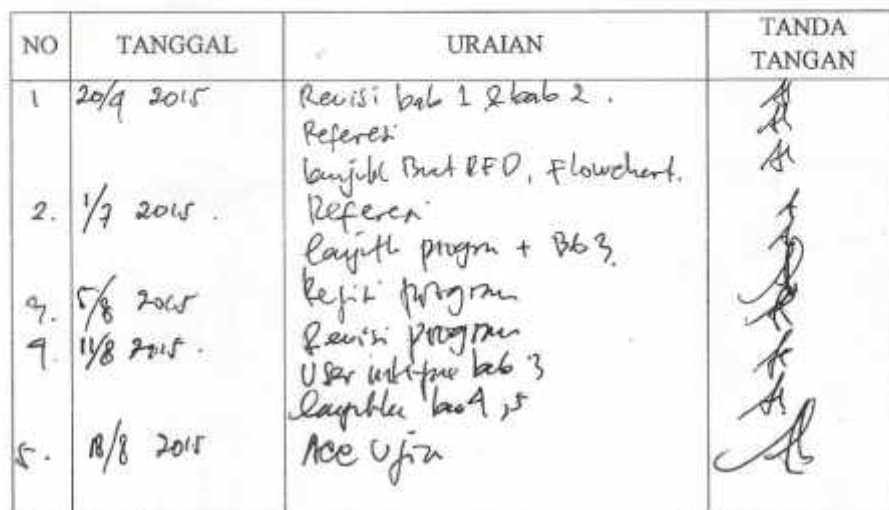 NO TANGGAL URAIAN TANDA TANGAN
1 20/4 2015 Revisi bab 1 & bab 2.
Referesi
Buat DFD, Flowchart.
2. 1/7 2015. Referesi
program + Bab 3.
3. 5/8 2015 Revisi program
4. 11/8 2015. Revisi program
User interface bab 3
bab 4, 5
5. 18/8 2015 Acc Ujian